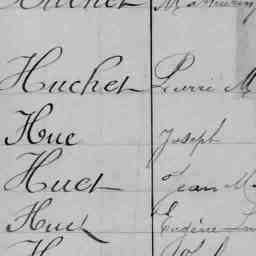 Huchet Mathurin
Huchet Pierre M
Hue Joseph
Huet Jean M
Huet Eugène